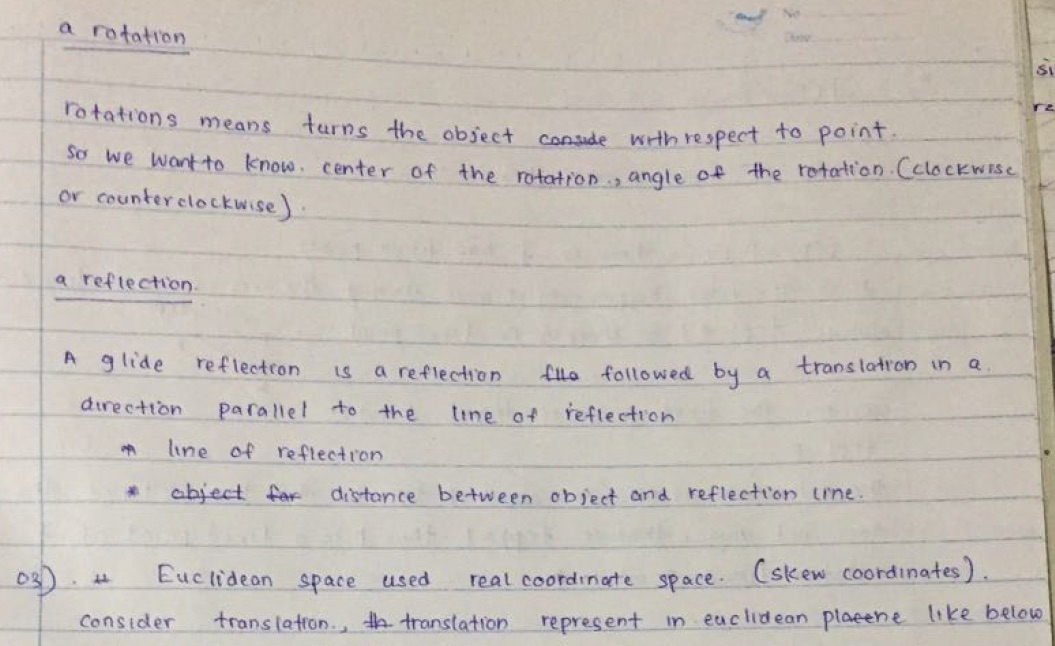 No
Date
a rotation
si
re
rotations means turns the object conside with respect to point.
So we want to know. center of the rotation., angle of the rotation. (clockwise
or counterclockwise).
a reflection.
A glide reflection is a reflection followed by a translation in a.
direction parallel to the line of reflection
* line of reflection
* object for distance between object and reflection line.
03). # Euclidean space used real coordinate space. (skew coordinates).
consider translation., th translation represent in euclidean plane like below